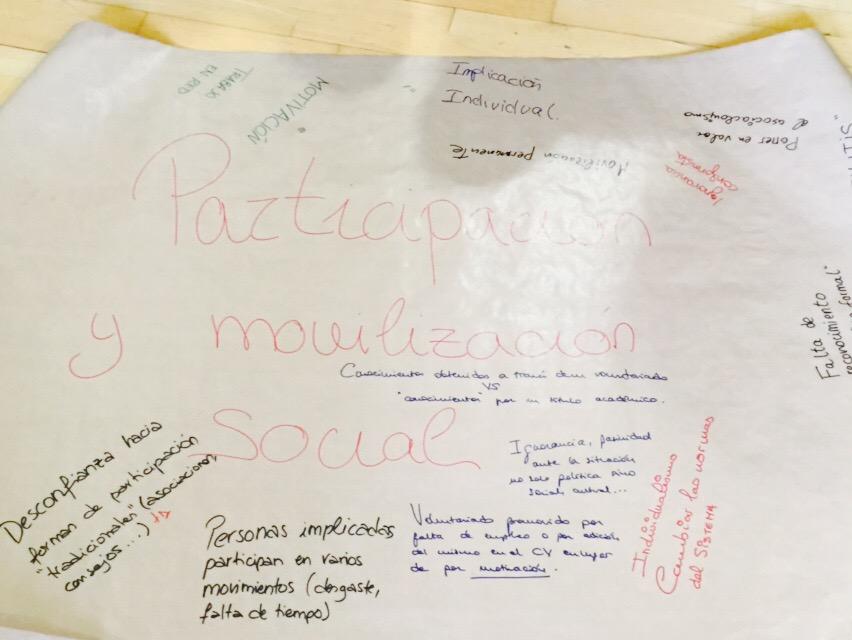 TRABAJO
EN RED
MOTIVACIÓN
Implicación
Individual.
Movilización permanente
Poner en valor
el asociacionismo
Ignorancia
conformista
Participación
y movilización
Social
Falta de
reconocimiento
formal"
Conocimientos obtenidos a través de un voluntariado
VS
"conocimientos" por un título académico.
Ignorancia, pasividad
ante la situación
no solo política sino
social actual...
Individualismo
Cambiar las normas
del SISTEMA
Desconfianza hacia
formas de participación
"tradicionales" (asociaciones,
consejos...) +1
Personas implicadas
participan en varios
movimientos (desgaste,
falta de tiempo)
Voluntariado promovido por
falta de empleo o por adición
del mismo en el CV en lugar
de por motivación.